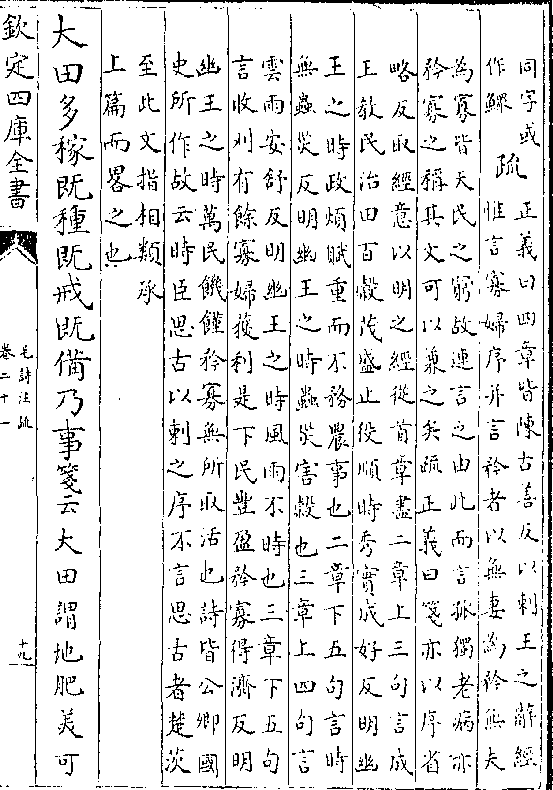 同字或
作鰥
疏
正義曰四章皆陳古善反以刺王之辭經
惟言寡婦序并言矜者以無妻為矜無夫
為寡皆天民之窮故連言之由此而言孤獨老病亦
矜寡之稱其文可以兼之矣疏正義曰箋亦以序省
略反取經意以明之經從首章盡二章上三句言成
王敎民治田百穀茂盛止役順時秀實成好反明幽
王之時政煩賦重而不務農事也二章下五句言時
無蟲災反明幽王之時蟲災害穀也三章上四句言
雲雨安舒反明幽王之時風雨不時也三章下五句
言收刈有餘寡婦獲利是下民豐盈矜寡得濟反明
幽王之時萬民饑饉矜寡無所取活也詩皆公卿國
史所作故云時臣思古以刺之序不言思古者楚茨
至此文指相類承
上篇而畧之也
大田多稼既種既戒既備乃事箋云大田謂地肥美可
欽定四庫全書
毛詩注疏
卷二十一
十九